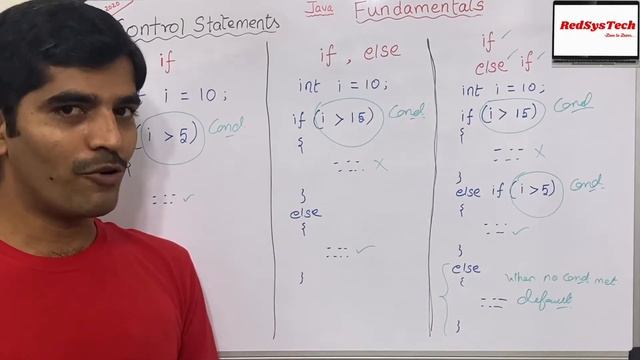 2020
Control Statements
Java
Fundamentals
RedSysTech
if
i = 10 ;
(i > 5)
Cond
if , else
int i = 10 ;
if (i > 15)
Cond
{
}
else
{
}
if
else if
int i = 10 ;
if (i > 15)
Cond
{
}
else if (i > 5)
Cond
{
}
else
{
when no cond met
default
}